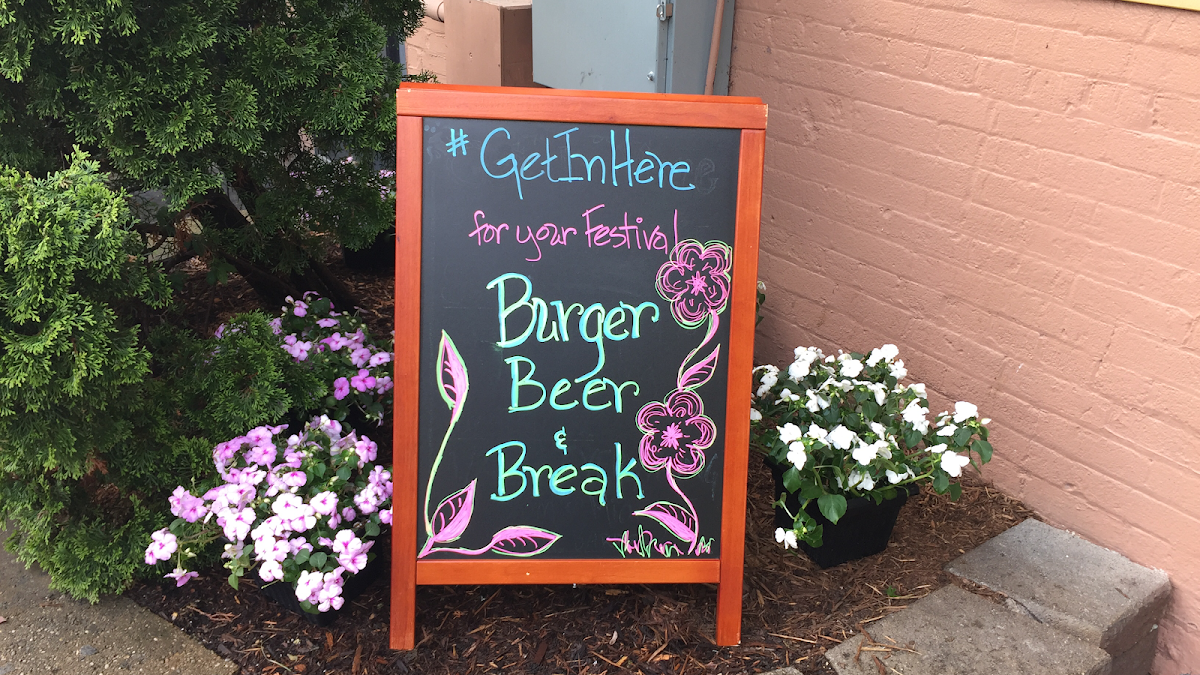 # GetInHere
for your Festival
Burger
Beer
&
Break